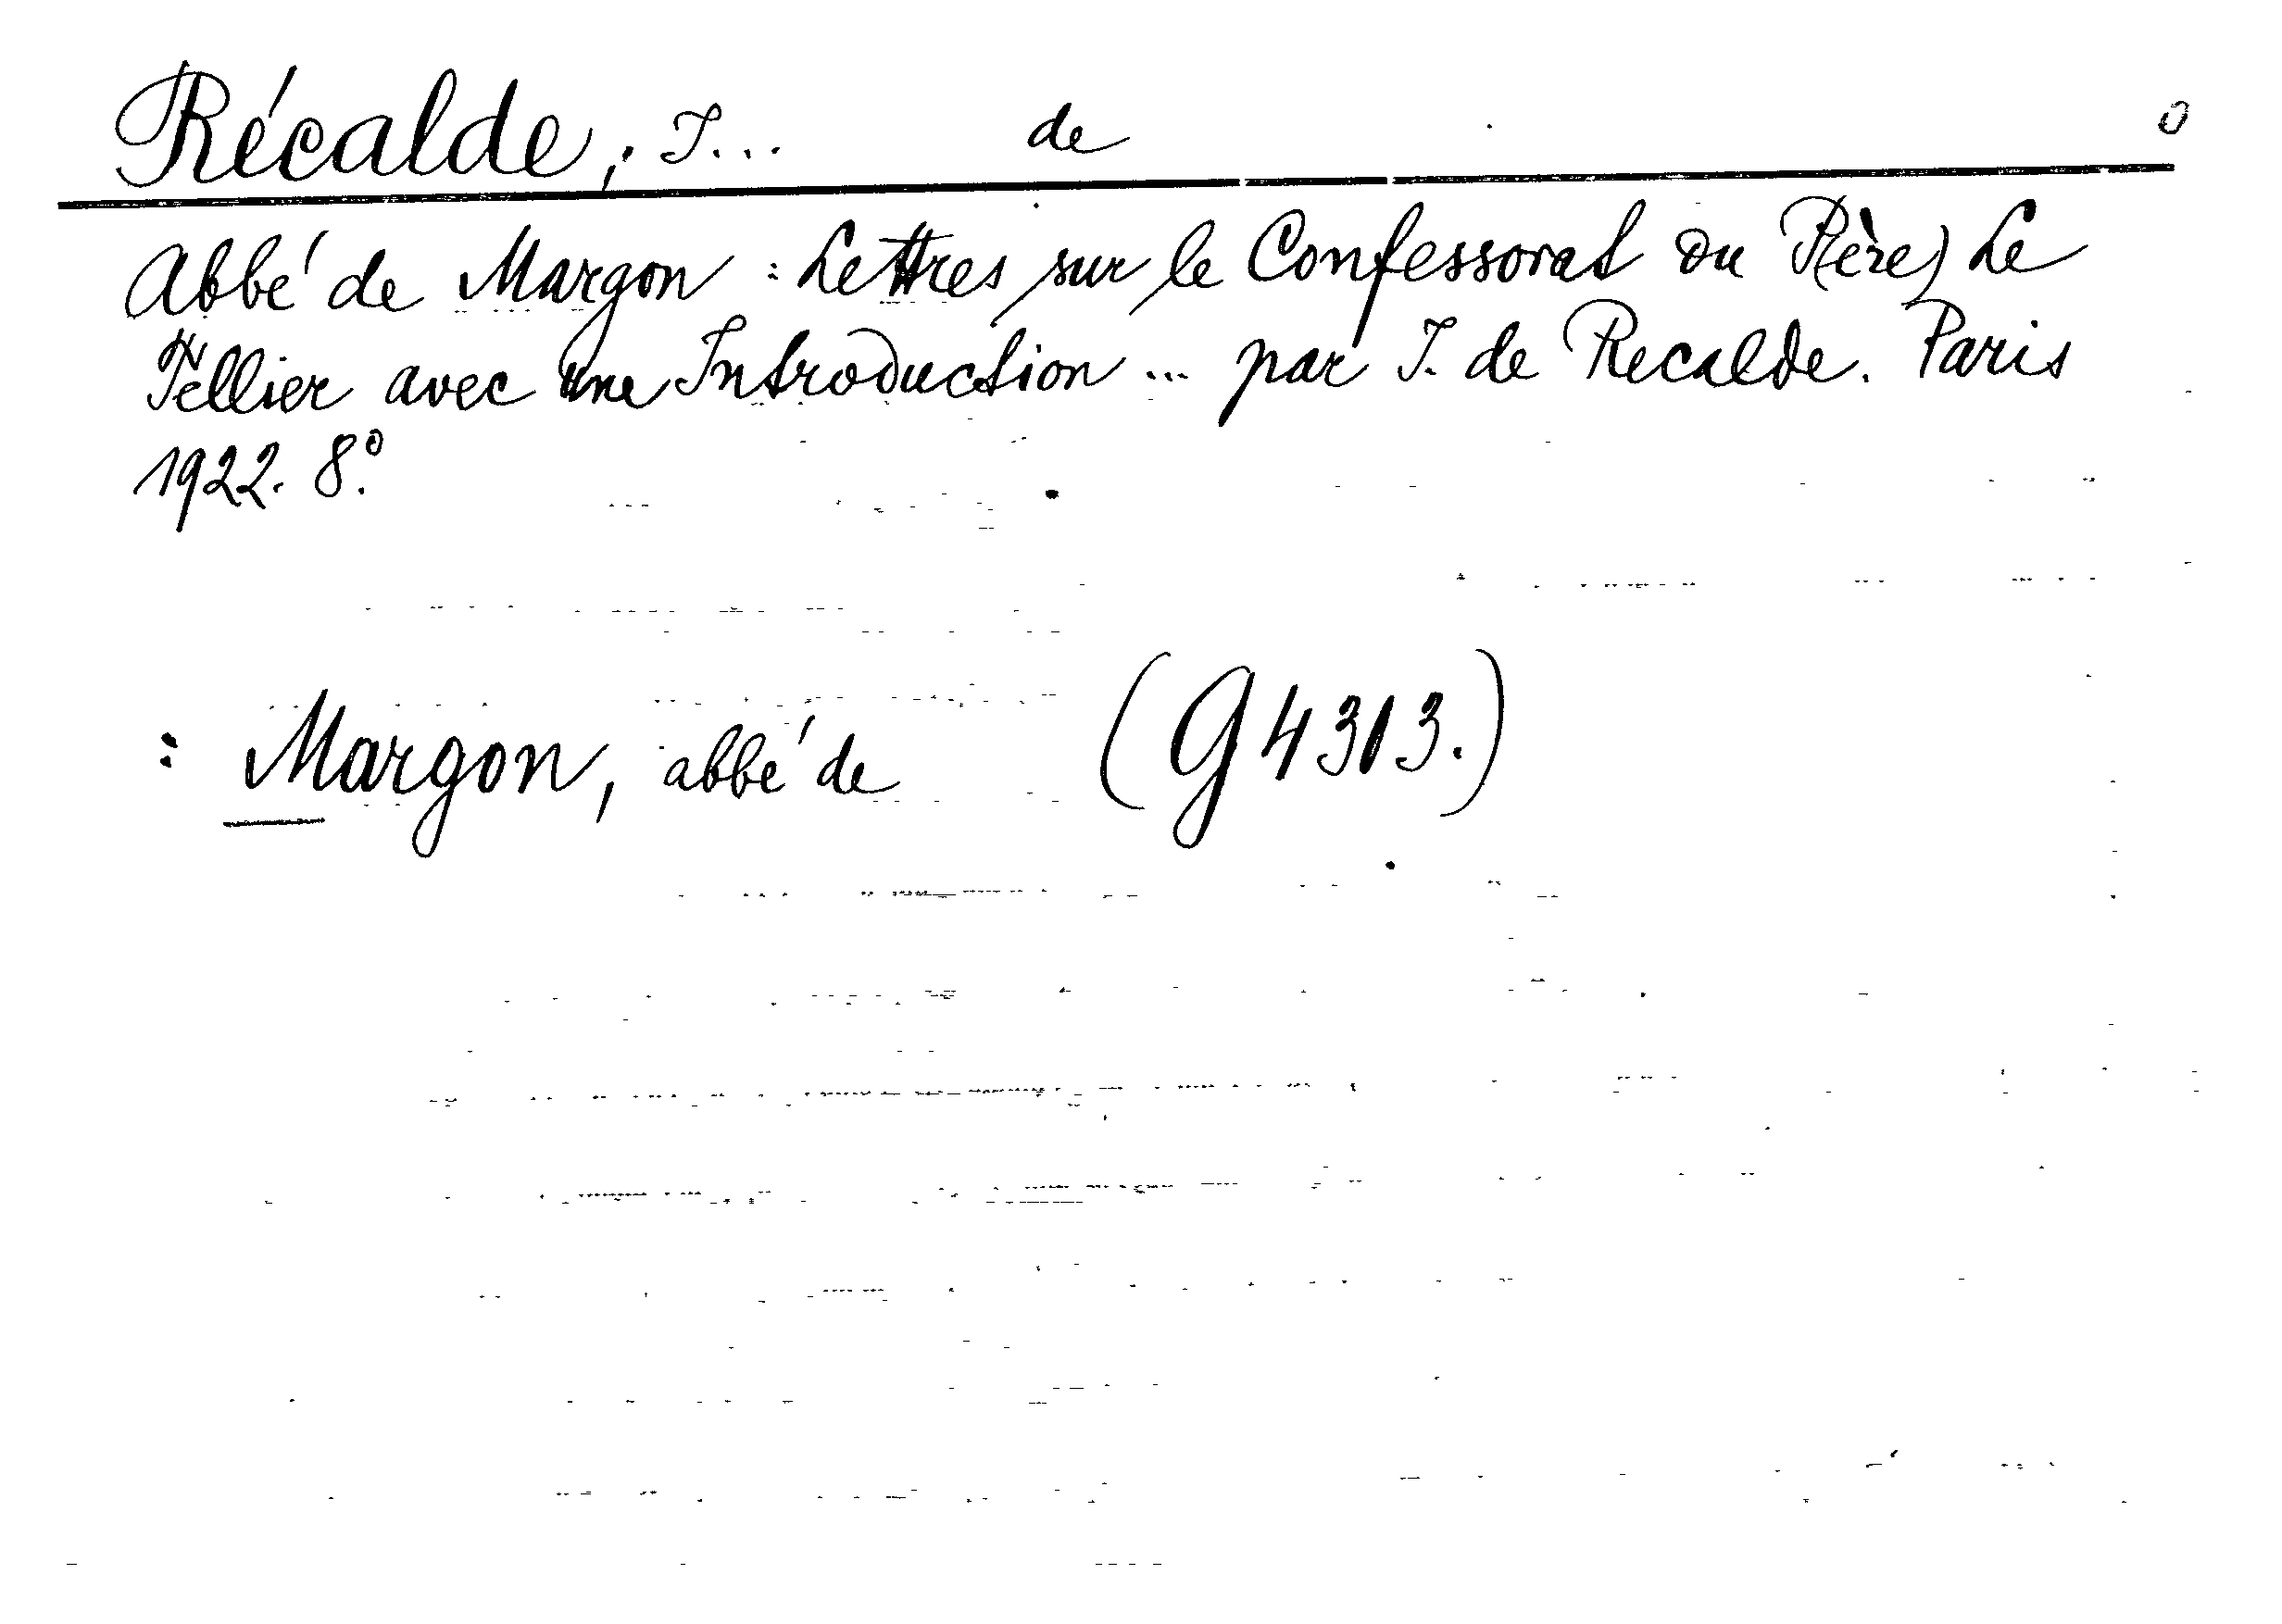 Récalde, I... de
Abbé de Margon : Lettres sur le Confessorat du Père Le
Tellier avec une Introduction ... par I. de Recalde. Paris
1922. 8°.
: Margon, abbé de (G 4313.)